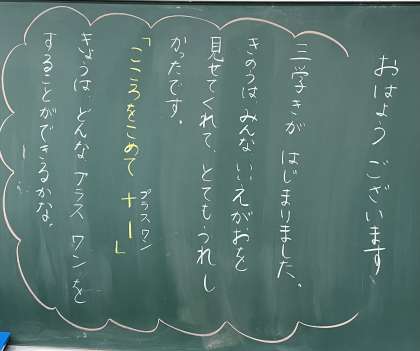 おはようございます
三学きが はじまりました。
きのうは、みんな いいえがおを
見せてくれて、とても うれし
かったです。
「こころをこめて +1」
プラスワン
きょうは、どんな プラス ワン を
することができるかな。